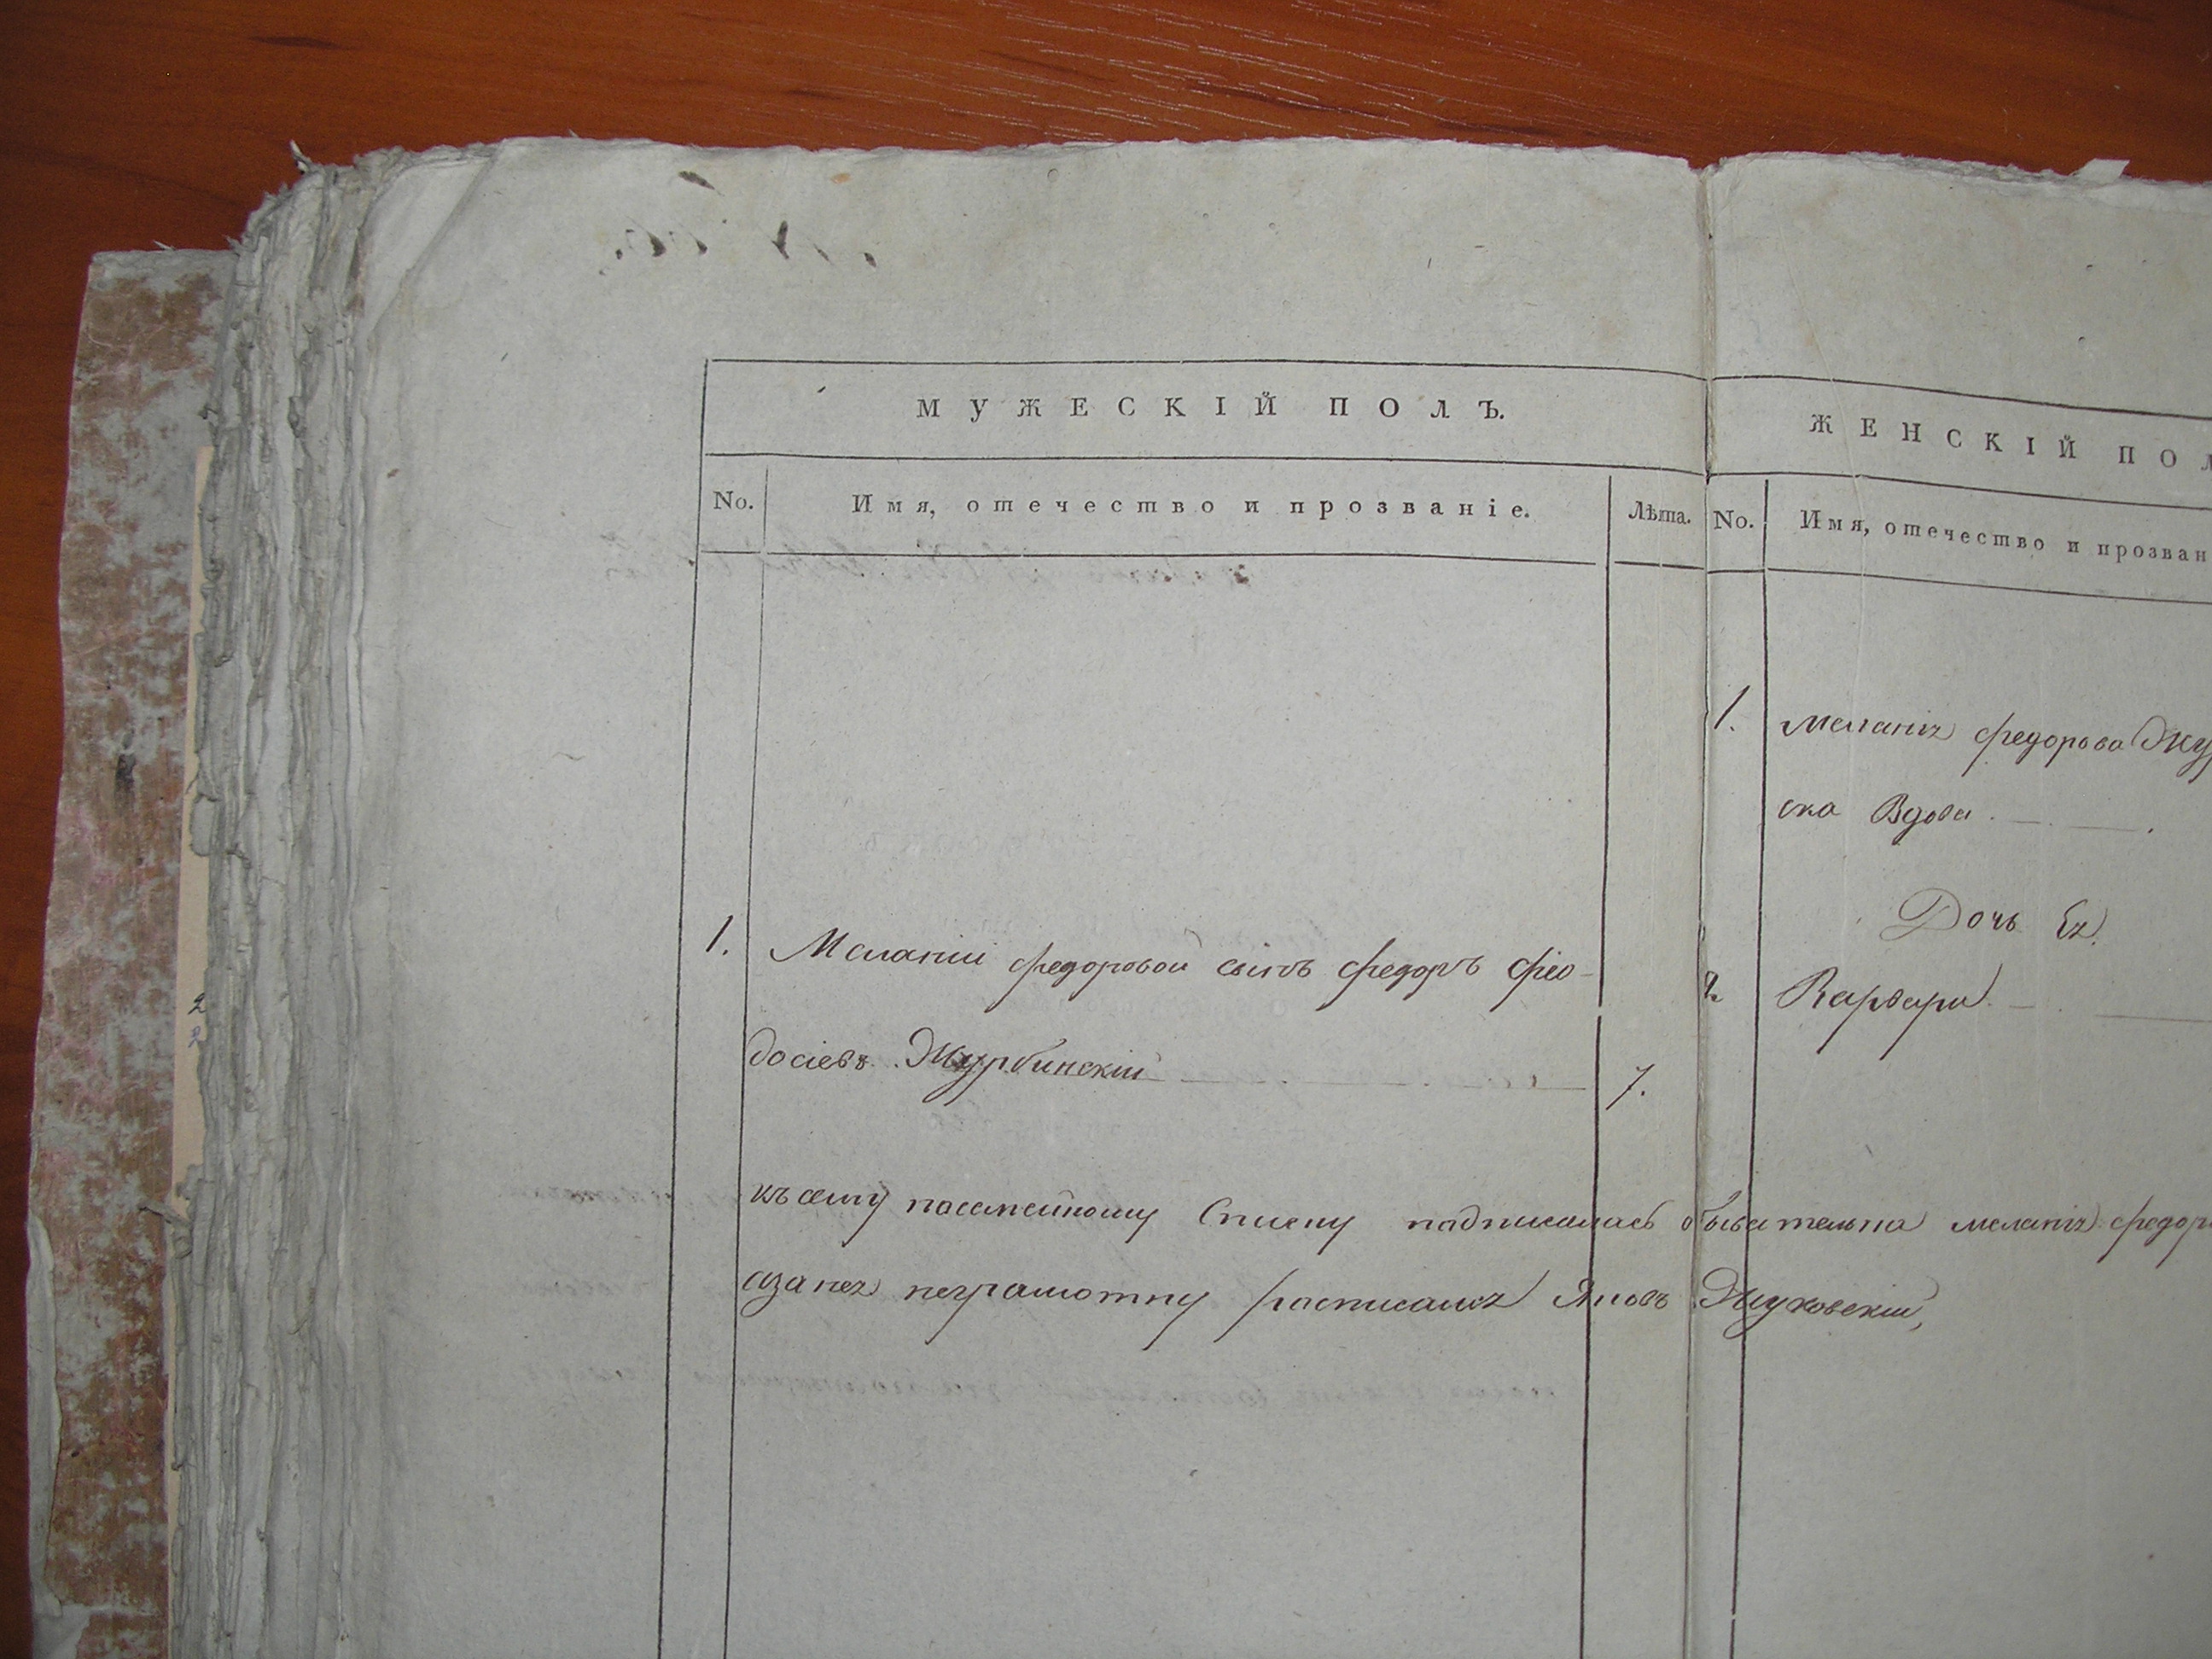 МУЖЕСКІЙ ПОЛЪ.
No. Имя, отечество и прозваніе. Лѣта.
1. Меланіи федоровой сынъ федоръ фео-
досіевъ Журбинскій 7.
ЖЕНСКІЙ ПОЛ
No. Имя, отечество и прозван
1. Меланія федорова Жур
ска Вдова
Дочь Ея.
2 Варвара
къ сему посемейному Списку подписалась обывателька меланія федор
азанея неграмотну росписался Яковъ Жуковскій,